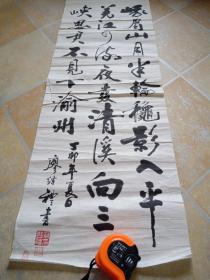 峨眉山月半輪龝影入平
羌江水流夜發清溪向三
峽思君不見下渝州
丁卯年夏日
廖書